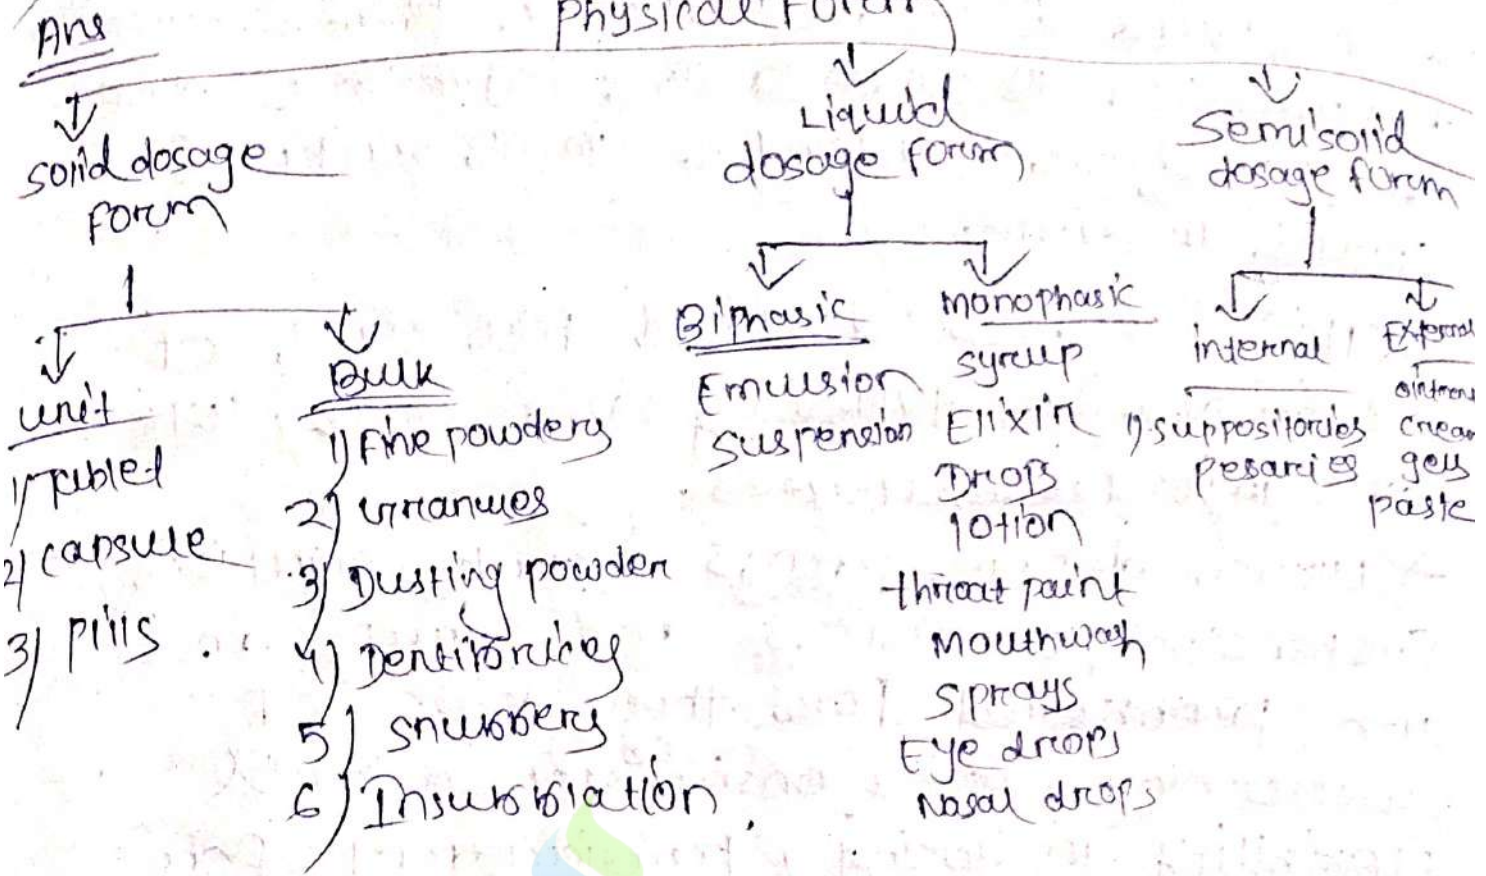 Ans
Physical Form
Solid dosage form
Liquid dosage form
Semisolid dosage form
unit
1) Tablet
2) capsule
3) pills
Bulk
1) Fine powders
2) Granules
3) Dusting powder
4) Dentifrices
5) Snuffers
6) Insufflation
Biphasic
Emulsion
Suspension
monophasic
syrup
Elixir
Drops
lotion
throat paint
Mouthwash
Sprays
Eye drops
Nasal drops
internal
1) suppositories
pesaries
External
ointmen
crea
gels
paste